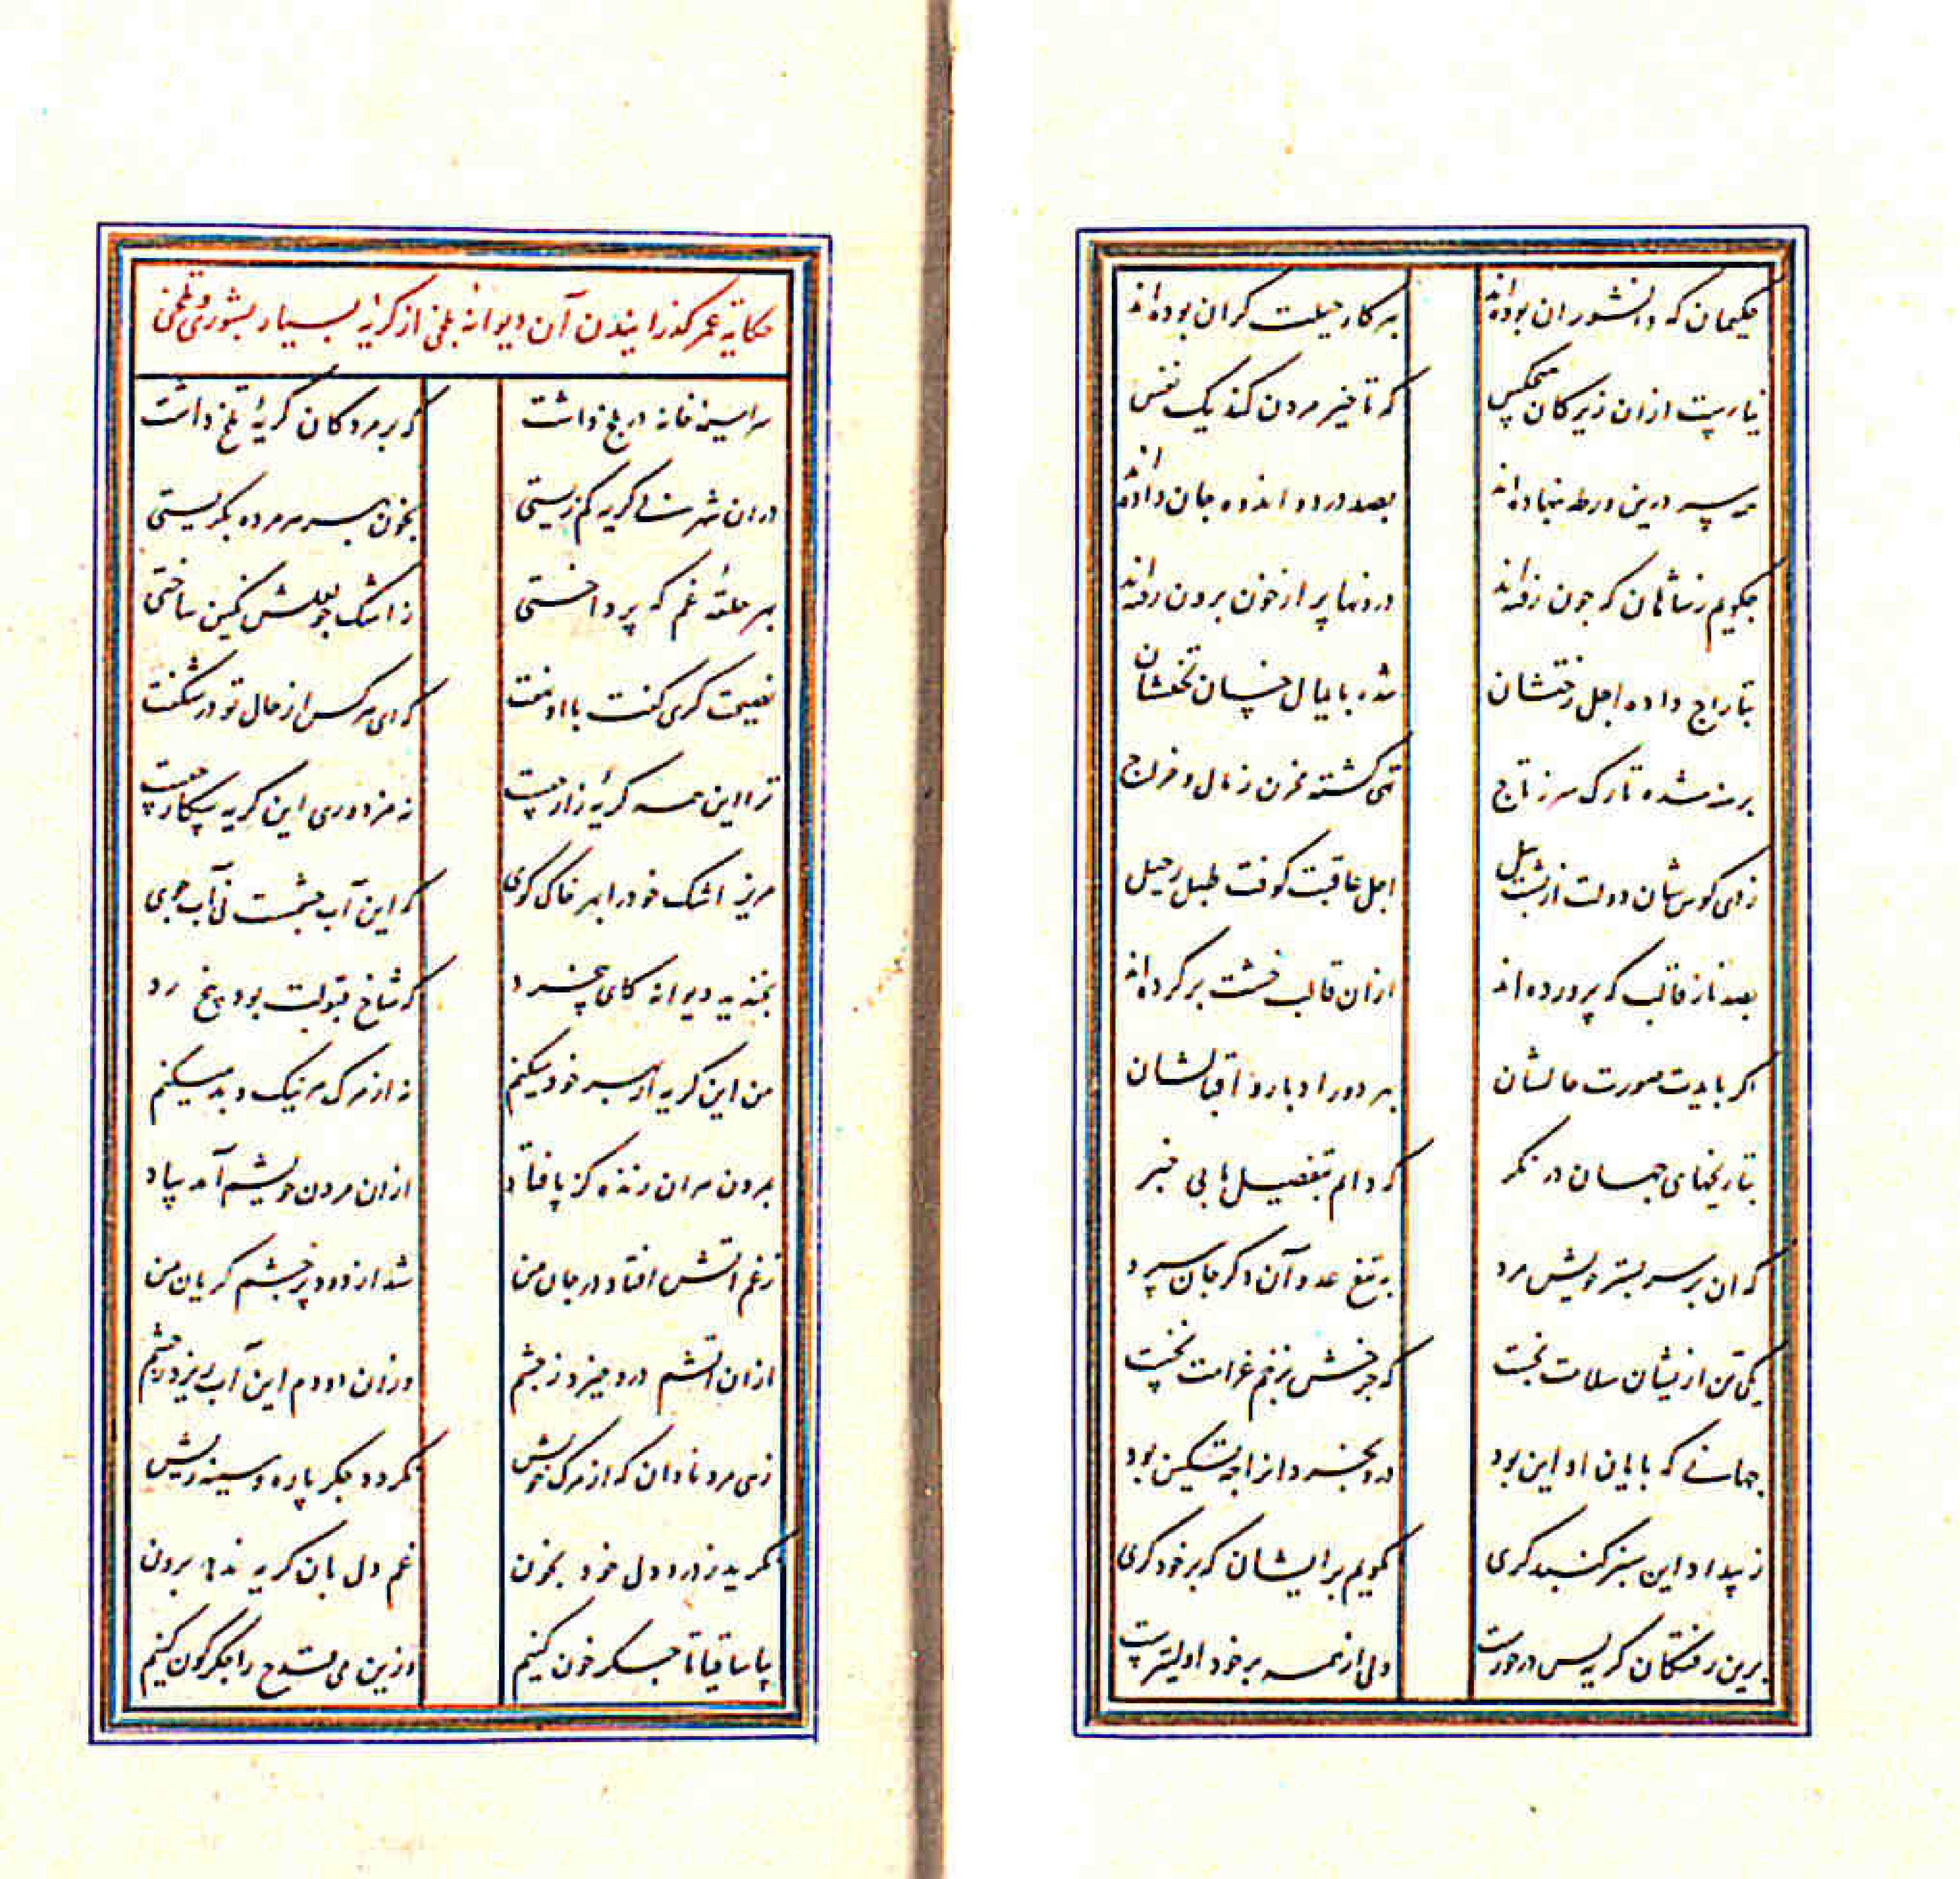 حکیمان که دانشوران بوده‌اند بهر کار حیلت گران بوده‌اند
نیارست ازان زیرکان هیچکس که تاخیر مردن کند یک نفس
همه سر درین ورطه بنهاده‌اند بصد درد و اندوه جان داده‌اند
چگویم ز شاهان که چون رفته‌اند درونها پر از خون برون رفته‌اند
بتاراج داده اجل رختشان شده پایمال خسان تختشان
برهنه شده تارک سر ز تاج تهی گشته مخزن ز مال و خراج
زدی کوس شان دولت از پشت پیل اجل عاقبت کوفت طبل رحیل
بصد ناز قالب که پرورده‌اند ازان قالب خشت برکرده‌اند
اگر بایدت صورت حالشان بهر دور ادبار و اقبالشان
بتاریخهای جهان در نگر که دانم بتفصیل‌ها بی خبر
که آن بر سر بستر خویش مرد به تیغ عدو آن دگر جان سپرد
یکی تن ازیشان سلامت نجست که چرخش بزخم غرامت نخست
جهانی که پایان او این بود در و بخرد از چه تسکین بود
ز بیداد این سبز گنبد گری نگویم بر ایشان که بر خود گری
برین رفتگان گریه بس درخورست ولی از همه بر خود اولیترست
حکایة عمر گذرانیدن آن دیوانه بلخی از گریه بسیار بشوری و تلخی
سراسیمه خانه در بلخ داشت که بر مردگان گریهٔ تلخ داشت
دران شهر بی گریه کم زیستی بخون بر سر مرده بگریستی
بهر حلقهٔ غم که پرداختی ز اشک چو لعلش نگین ساختی
نصیحت گری گفت با او نهفت که ای هر کس از حال تو در شگفت
ترا این همه گریهٔ زار چیست نه مزدوری این گریه بیکار چیست
مریز اشک خود را بهر خاک کوی که این آب چشمست نی آب جوی
بخندید دیوانه کای بیخرد که شاخ قبولت بود بیخ رد
من این گریه از بهر خود میکنم نه از مرگ هر نیک و بد میکنم
برون سران زنده کز پا فتاد ازان مردن خویشم آمد بیاد
ز غم آتش افتاد در جان من شد از دود پر چشم گریان من
ازان آتشم درد خیزد ز چشم وزان دودم این آب ریزد ز چشم
زهی مرد نادان که از مرگ خویش نگردد جگر پاره و سینه ریش
نگرید ز درد دل خود بخون غم دل بان گریه ندهد برون
بیا ساقیا تا جگر خون کنیم وزین می قدح را جگرگون کنیم